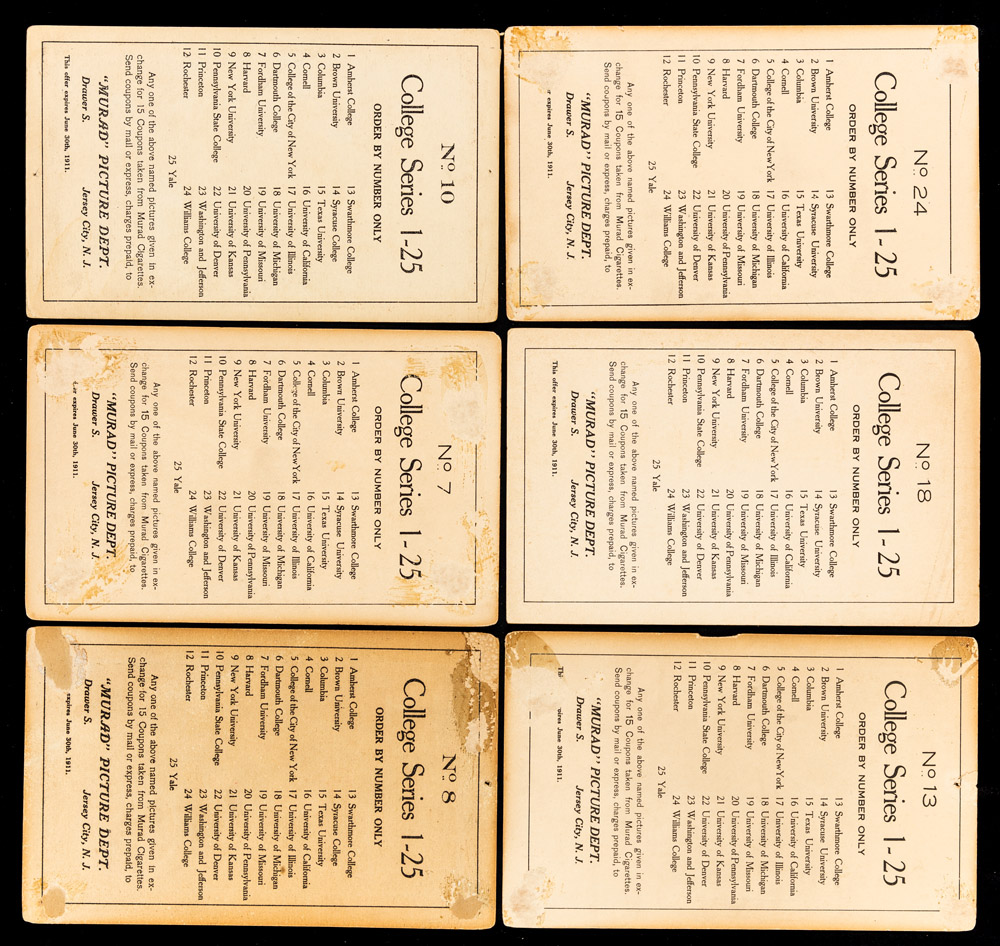 No. 10
College Series 1-25
ORDER BY NUMBER ONLY
1 Amherst College 13 Swarthmore College
2 Brown University 14 Syracuse College
3 Columbia 15 Texas University
4 Cornell 16 University of California
5 College of the City of New York 17 University of Illinois
6 Dartmouth College 18 University of Michigan
7 Fordham University 19 University of Missouri
8 Harvard 20 University of Pennsylvania
9 New York University 21 University of Kansas
10 Pennsylvania State College 22 University of Denver
11 Princeton 23 Washington and Jefferson
12 Rochester 24 Williams College
25 Yale
Any one of the above named pictures given in ex-
change for 15 Coupons taken from Murad Cigarettes.
Send coupons by mail or express, charges prepaid, to
"MURAD" PICTURE DEPT.
Drawer S. Jersey City, N. J.
This offer expires June 30th, 1911.
No. 24
College Series 1-25
ORDER BY NUMBER ONLY
1 Amherst College 13 Swarthmore College
2 Brown University 14 Syracuse University
3 Columbia 15 Texas University
4 Cornell 16 University of California
5 College of the City of New York 17 University of Illinois
6 Dartmouth College 18 University of Michigan
7 Fordham University 19 University of Missouri
8 Harvard 20 University of Pennsylvania
9 New York University 21 University of Kansas
10 Pennsylvania State College 22 University of Denver
11 Princeton 23 Washington and Jefferson
12 Rochester 24 Williams College
25 Yale
Any one of the above named pictures given in ex-
change for 15 Coupons taken from Murad Cigarettes.
Send coupons by mail or express, charges prepaid, to
"MURAD" PICTURE DEPT.
Drawer S. Jersey City, N. J.
expires June 30th, 1911.
No. 7
College Series 1-25
ORDER BY NUMBER ONLY
1 Amherst College 13 Swarthmore College
2 Brown University 14 Syracuse University
3 Columbia 15 Texas University
4 Cornell 16 University of California
5 College of the City of New York 17 University of Illinois
6 Dartmouth College 18 University of Michigan
7 Fordham University 19 University of Missouri
8 Harvard 20 University of Pennsylvania
9 New York University 21 University of Kansas
10 Pennsylvania State College 22 University of Denver
11 Princeton 23 Washington and Jefferson
12 Rochester 24 Williams College
25 Yale
Any one of the above named pictures given in ex-
change for 15 Coupons taken from Murad Cigarettes.
Send coupons by mail or express, charges prepaid, to
"MURAD" PICTURE DEPT.
Drawer S. Jersey City, N. J.
expires June 30th, 1911
No. 18
College Series 1-25
ORDER BY NUMBER ONLY
1 Amherst College 13 Swarthmore College
2 Brown University 14 Syracuse University
3 Columbia 15 Texas University
4 Cornell 16 University of California
5 College of the City of New York 17 University of Illinois
6 Dartmouth College 18 University of Michigan
7 Fordham University 19 University of Missouri
8 Harvard 20 University of Pennsylvania
9 New York University 21 University of Kansas
10 Pennsylvania State College 22 University of Denver
11 Princeton 23 Washington and Jefferson
12 Rochester 24 Williams College
25 Yale
Any one of the above named pictures given in ex-
change for 15 Coupons taken from Murad Cigarettes.
Send coupons by mail or express, charges prepaid, to
"MURAD" PICTURE DEPT.
Drawer S. Jersey City, N. J.
This offer expires June 30th, 1911.
No. 8
College Series 1-25
ORDER BY NUMBER ONLY
1 Amherst College 13 Swarthmore College
2 Brown University 14 Syracuse College
3 Columbia 15 Texas University
4 Cornell 16 University of California
5 College of the City of New York 17 University of Illinois
6 Dartmouth College 18 University of Michigan
7 Fordham University 19 University of Missouri
8 Harvard 20 University of Pennsylvania
9 New York University 21 University of Kansas
10 Pennsylvania State College 22 University of Denver
11 Princeton 23 Washington and Jefferson
12 Rochester 24 Williams College
25 Yale
Any one of the above named pictures given in ex-
change for 15 Coupons taken from Murad Cigarettes.
Send coupons by mail or express, charges prepaid, to
"MURAD" PICTURE DEPT.
Drawer S. Jersey City, N. J.
expires June 30th, 1911.
No. 13
College Series 1-25
ORDER BY NUMBER ONLY
1 Amherst College 13 Swarthmore College
2 Brown University 14 Syracuse University
3 Columbia 15 Texas University
4 Cornell 16 University of California
5 College of the City of New York 17 University of Illinois
6 Dartmouth College 18 University of Michigan
7 Fordham University 19 University of Missouri
8 Harvard 20 University of Pennsylvania
9 New York University 21 University of Kansas
10 Pennsylvania State College 22 University of Denver
11 Princeton 23 Washington and Jefferson
12 Rochester 24 Williams College
25 Yale
Any one of the above named pictures given in ex-
change for 15 Coupons taken from Murad Cigarettes.
Send coupons by mail or express, charges prepaid, to
"MURAD" PICTURE DEPT.
Drawer S. Jersey City, N. J.
June 30th, 1911.